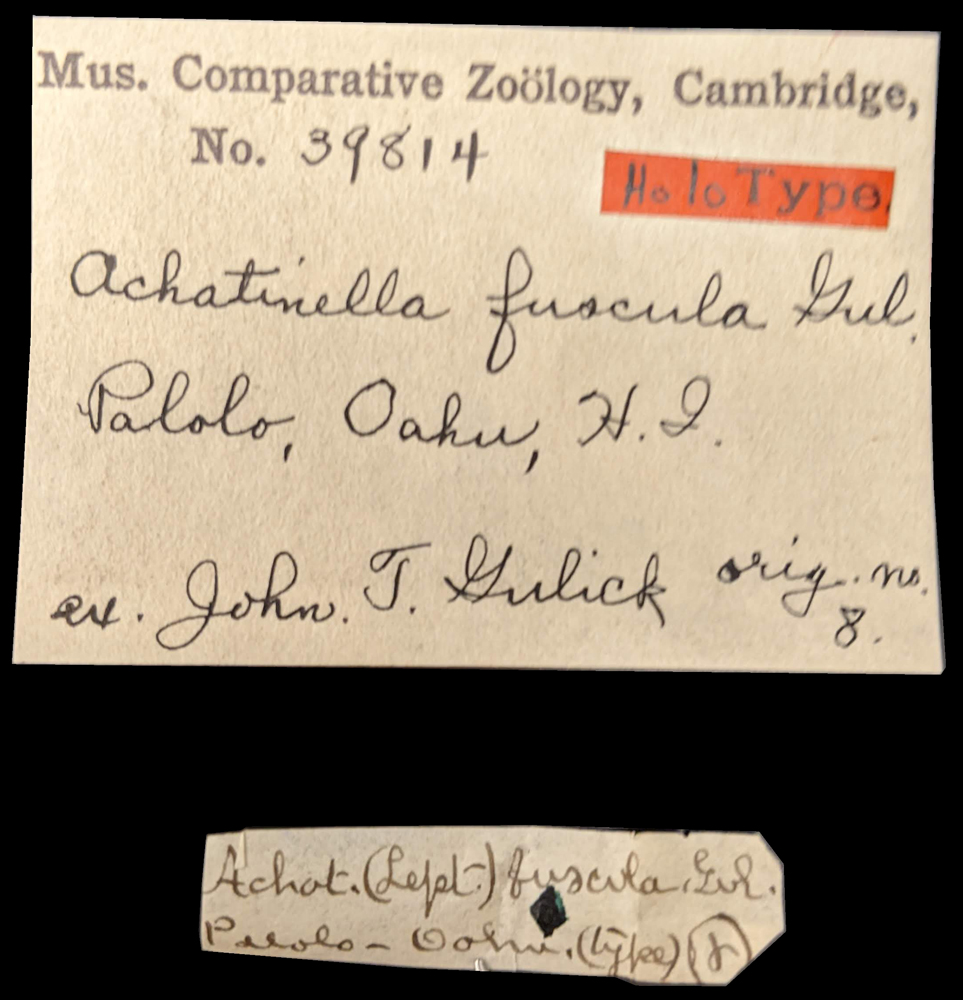 Mus. Comparative Zoölogy, Cambridge,
No. 39814
HoloType
Achatinella fuscula Gul.
Palolo, Oahu, H. I.
ex. John. T. Gulick orig. no.
8.
Achat. (Lept.) fuscula. Gul.
Palolo - Oahu. (type) (8)